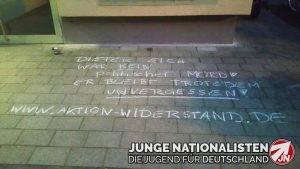 DIETER EICH
WAR KEIN
politischer MORD
ER BLEIBT TROTZDEM
UNVERGESSEN
WWW.AKTION-WIDERSTAND.DE
JUNGE NATIONALISTEN
DIE JUGEND FÜR DEUTSCHLAND
JN